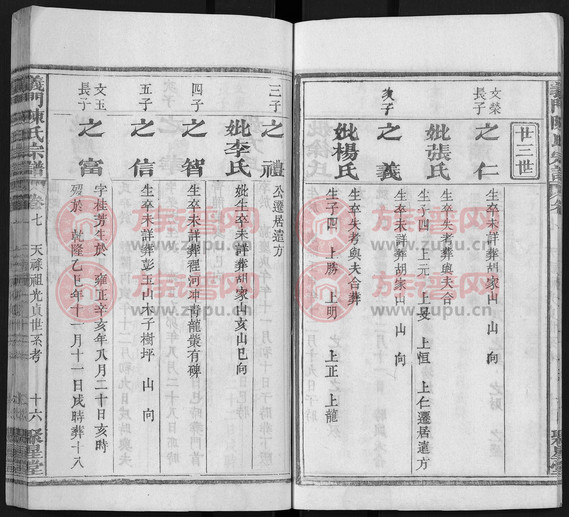 廿三世
文榮
長子
之仁
生卒未詳葬胡家山 山向
妣張氏
生卒失考與夫合葬
生子四 上元 上旻 上恒 上仁遷居遠方
次子
之義
生卒未詳葬胡家山 山向
妣楊氏
生卒失考與夫合葬
生子四 上勝 上明 上正 上龍
三子
之禮
公遷居遠方
妣李氏
妣生卒未詳葬胡家山亥山巳向
四子
之智
生卒未詳葬徑河冲青龍嘴有碑
五子
之信
生卒未詳葬彭玉山木子樹坪 山向
文玉
長子
之富
字桂芳生於 雍正辛亥年八月二十日亥時
歿於 乾隆乙巳年十一月十一日戌時葬十八
義門陳氏宗譜
卷七 天祿祖光貞世系考
十六
聚星堂
族譜网
www.zupu.cn
族譜网
www.zupu.cn
族譜网
www.zupu.cn
族譜网
www.zupu.cn